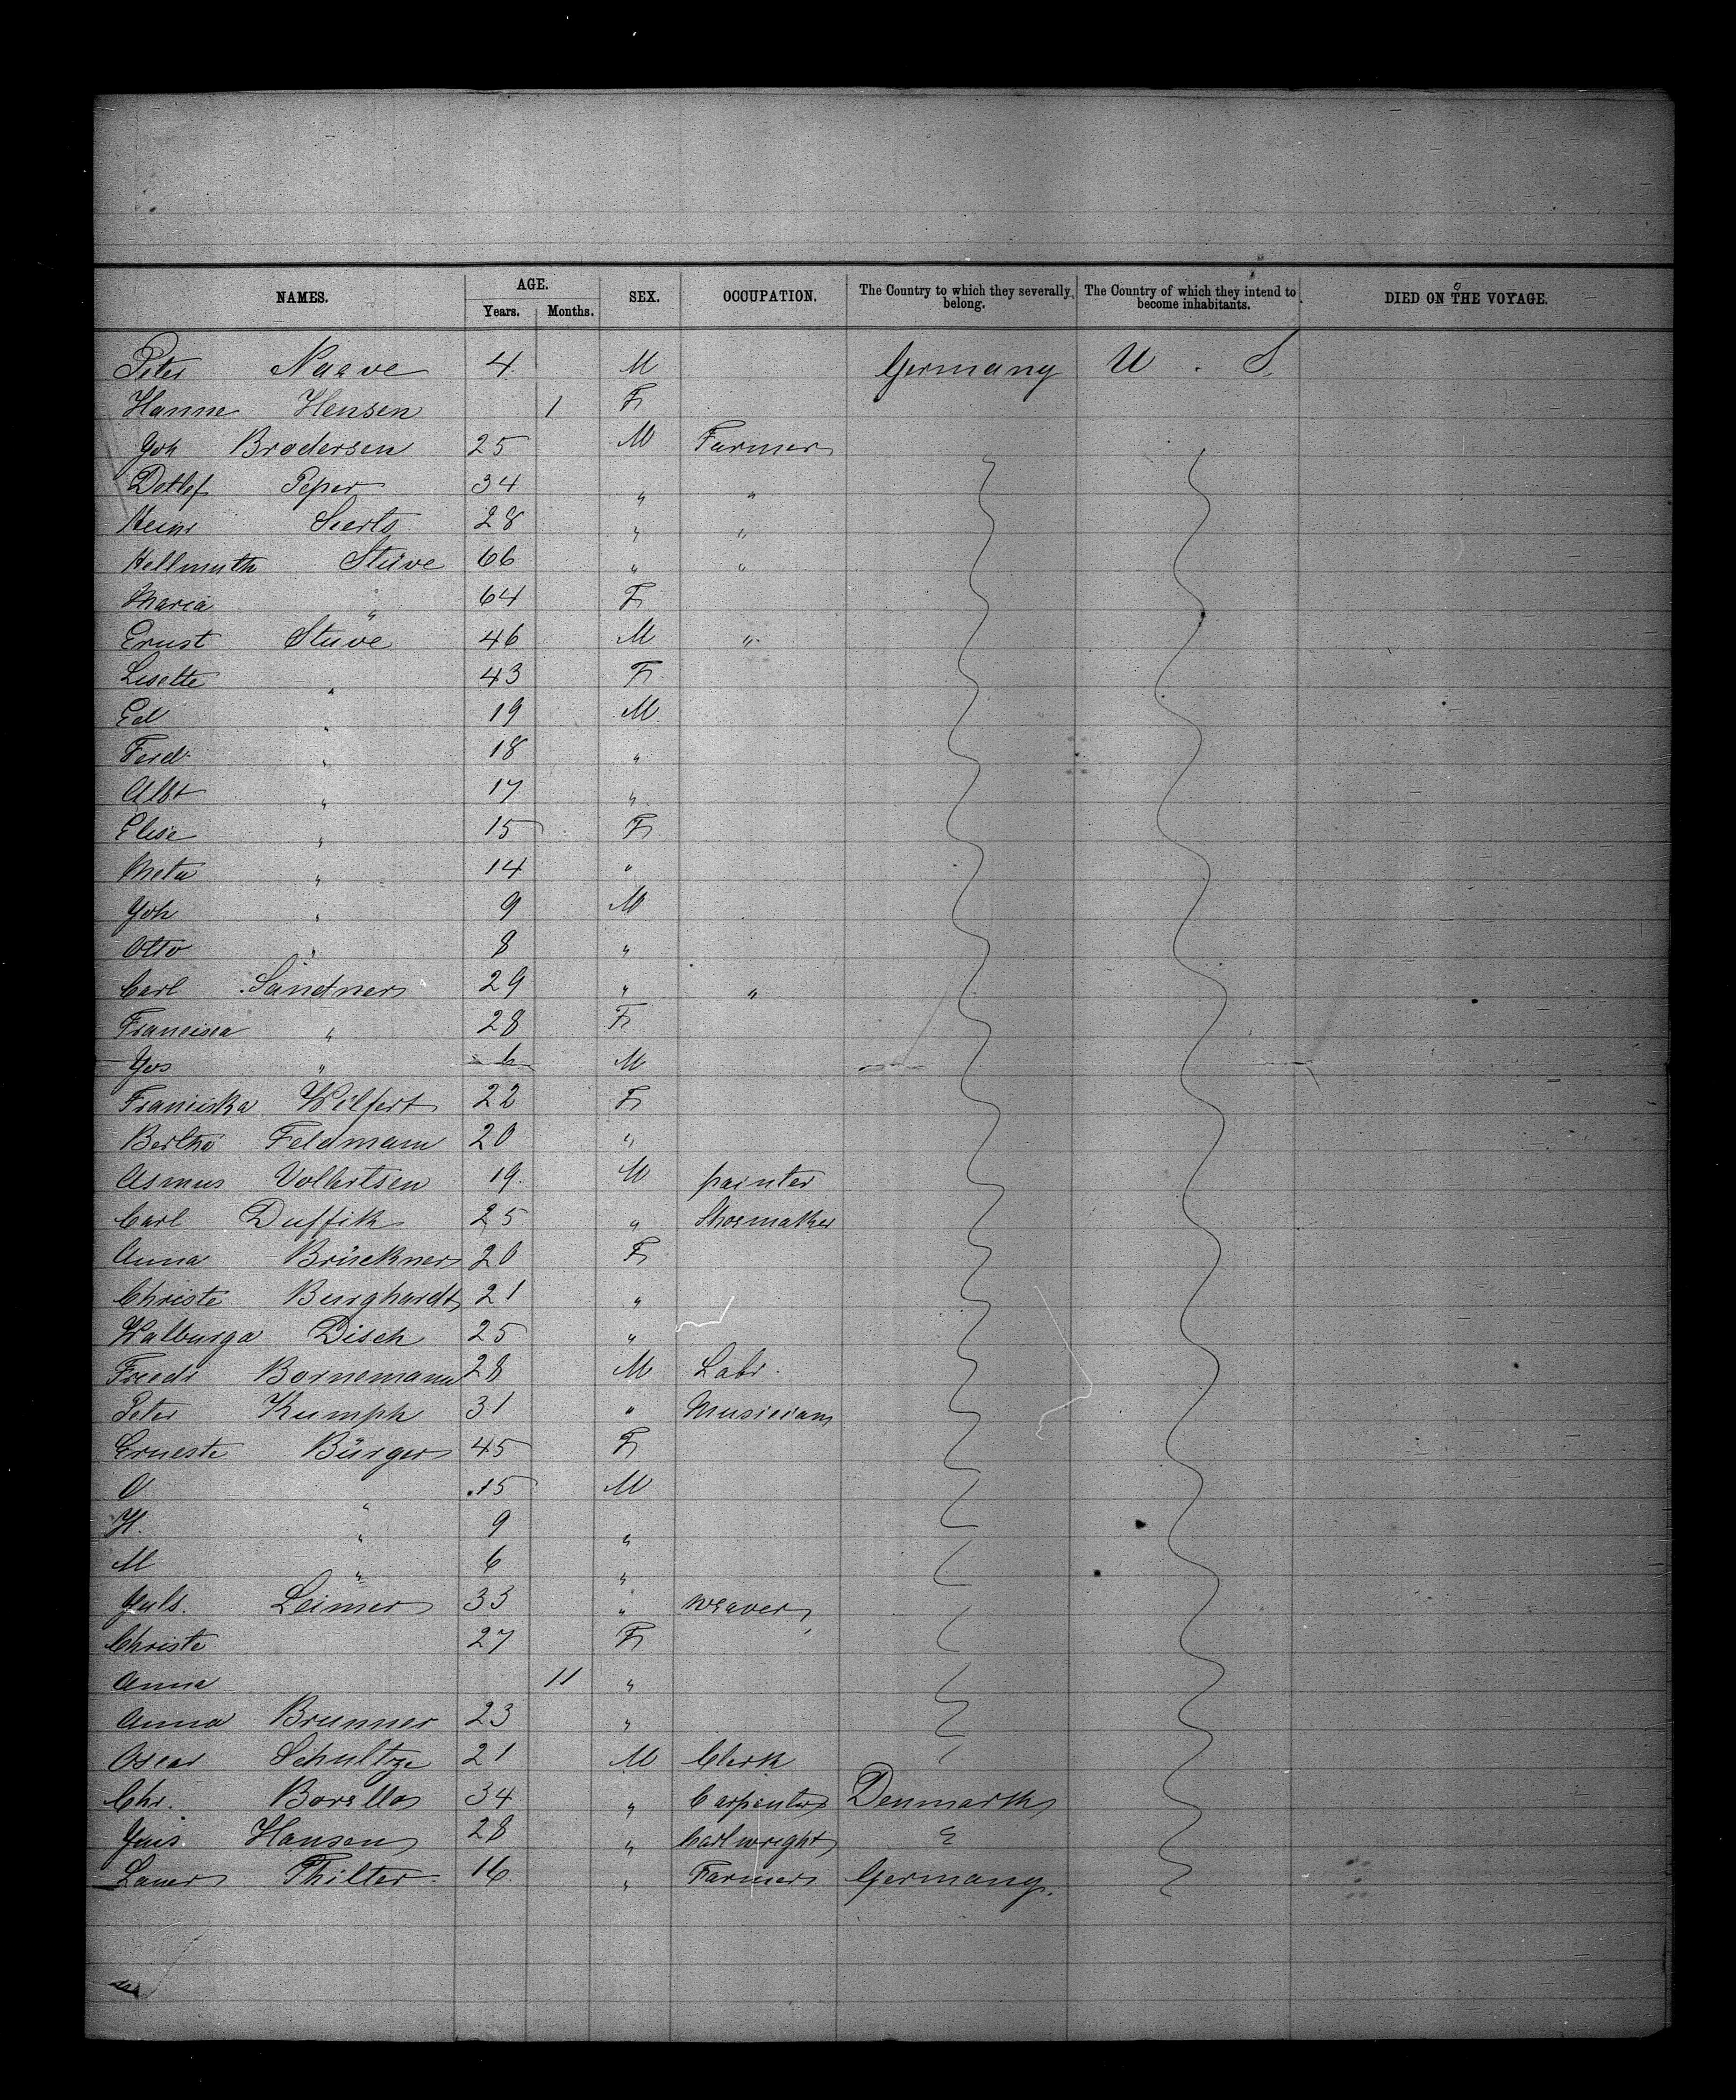 NAMES. AGE. Years. Months. SEX. OCCUPATION. The Country to which they severally belong. The Country of which they intend to become inhabitants. DIED ON THE VOYAGE.
Peter Naeve 4 M Germany U. S.
Hanne Hensen 1 F
Joh Brodersen 25 M Farmer
Detlef Peper 34 " "
Heinr Sierts 28 " "
Hellmuth Stüve 66 " "
Maria " 64 F
Ernst Stuve 46 M "
Lisette " 43 F
Ed " 19 M
Ferd " 18 "
Albt " 17 "
Elise " 15 F
Meta " 14 "
Joh " 9 M
Otto " 8 "
Carl Sandner 29 " "
Francisca " 28 F
Jos " 6 M
Franciska Wilfert 22 F
Bertha Feldmann 20 "
Asmus Vollertsen 19 M painter
Carl Duffik 25 " Shoemaker
Anna Brückner 20 F
Christe Burghardt 21 "
Walburga Disch 25 "
Friedr Bornemann 28 M Labr.
Peter Kumph 31 " Musician
Erneste Bürger 45 F
O " 15 M
H. " 9 "
M " 6 "
Juls. Leimer 33 " weaver
Christe 27 F
Anna 11 "
Anna Brunner 23 "
Oscar Schultze 21 M Clerk
Chr. 34 " Carpenter Denmark
Hansen 28 " Cartwright "
16 " Farmer Germany.